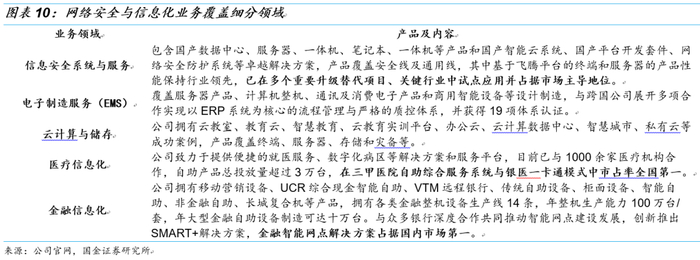 图表 10：网络安全与信息化业务覆盖细分领域
业务领域 产品及内容
包含国产数据中心、服务器、一体机、笔记本、一体机等产品和国产智能云系统、国产平台开发套件、网
信息安全系统与服务 络安全防护系统等卓越解决方案，产品覆盖安全线及通用线，其中基于飞腾平台的终端和服务器的产品性
能保持行业领先，已在多个重要升级替代项目、关键行业中试点应用并占据市场主导地位。
电子制造服务（EMS） 覆盖服务器产品、计算机整机、通讯及消费电子产品和商用智能设备等设计制造，与跨国公司展开多项合
作实现以 ERP 系统为核心的流程管理与严格的质控体系，并获得 19 项体系认证。
云计算与储存 公司拥有云教室、教育云、智慧教育、云教育实训平台、办公云、云计算数据中心、智慧城市、私有云等
成功案例，产品覆盖终端、服务器、存储和灾备等。
公司致力于提供便捷的就医服务、数字化病区等解决方案和服务平台，目前已与 1000 余家医疗机构合
医疗信息化 作，自助产品总投放量超过 3 万台，在三甲医院自助综合服务系统与银医一卡通模式中市占率全国第一。
公司拥有移动营销设备、UCR 综合现金智能自助、VTM 远程银行、传统自助设备、柜面设备、智能自
金融信息化 助、非金融自助、长城复合机等产品，拥有各类金融整机设备生产线 14 条，年整机生产能力 100 万台/
套，年大型金融自助设备制造可达十万台。与众多银行深度合作共同推动智能网点建设发展，创新推出
SMART+解决方案，金融智能网点解决方案占据国内市场第一。
来源：公司官网，国金证券研究所